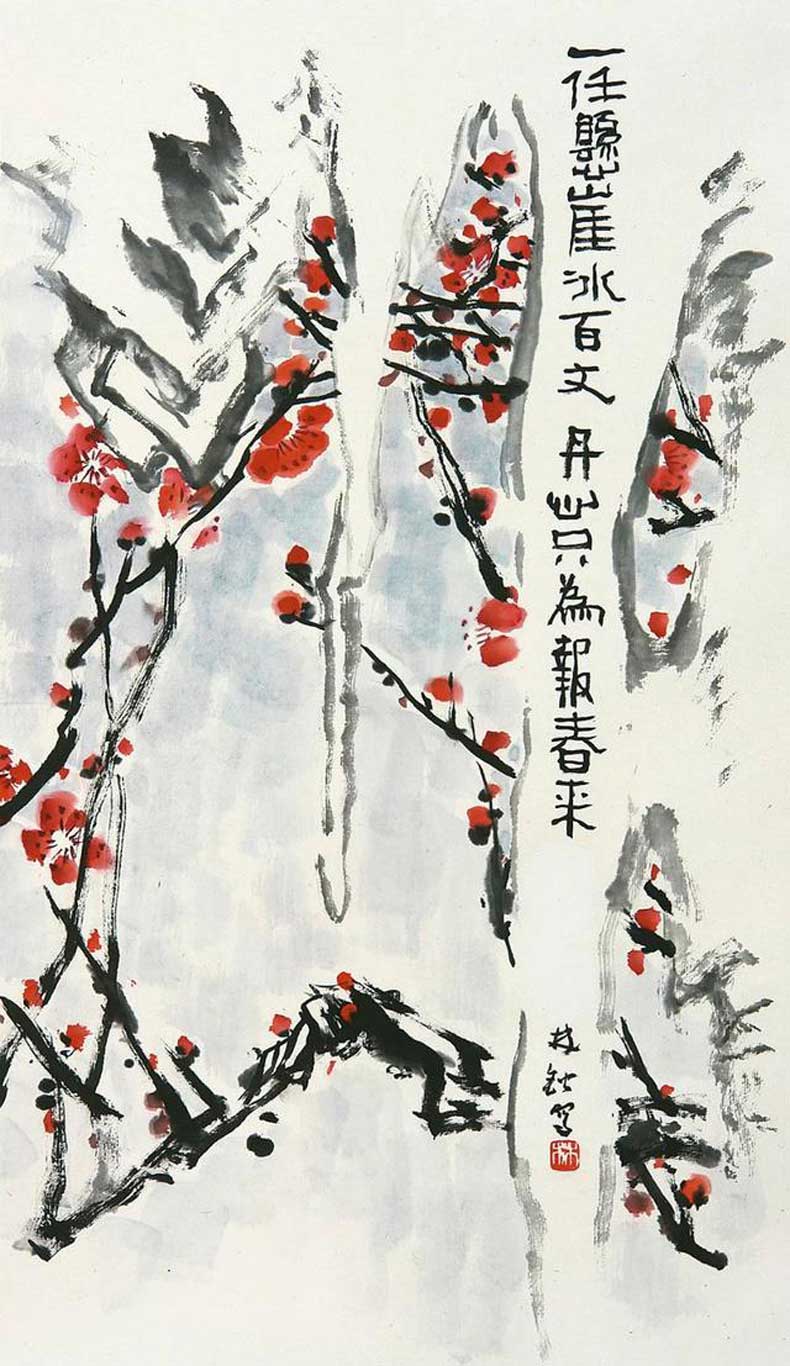 一任懸崖冰百丈 丹心只為報春來
林鍇写
林